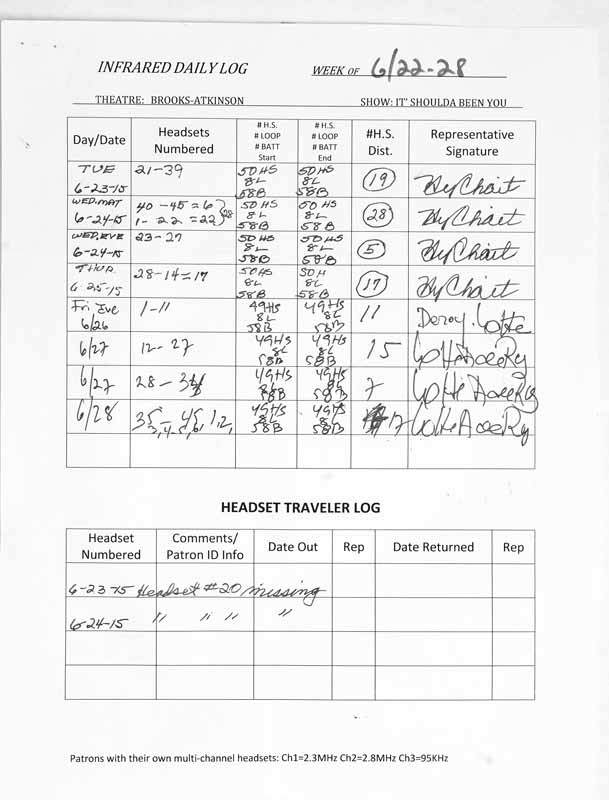 INFRARED DAILY LOG WEEK OF 6/22-28
THEATRE: BROOKS-ATKINSON SHOW: IT' SHOULDA BEEN YOU
Day/Date Headsets Numbered # H.S. # LOOP # BATT Start # H.S. # LOOP # BATT End #H.S. Dist. Representative Signature
TUE 6-23-15 21-39 50 HS 8L 58B 50 HS 8L 58B 19 HyChait
WED.MAT 6-24-15 40-45=6 1-22=22 28 50 HS 8L 58B 50 HS 8L 58B 28 HyChait
WED.EVE 6-24-15 23-27 50 HS 8L 58B 50 HS 8L 58B 5 HyChait
THUR 6-25-15 28-14=17 50HS 8L 58B 50H 8L 58B 17 HyChait
Fri Eve 6/26 1-11 49HS 8L 58B 49HS 8L 58B 11
6/27 12-27 49HS 8L 58B 49HS 8L 58B 15
6/27 28-34 49HS 8L 58B 49HS 8L 58B 7
6/28 35-45, 1,2, 3,4,5,6, 49HS 8L 58B 49HS 8L 58B 17
HEADSET TRAVELER LOG
Headset Numbered Comments/ Patron ID Info Date Out Rep Date Returned Rep
6-23-15 Headset #20 missing
6-24-15 " " " "
Patrons with their own multi-channel headsets: Ch1=2.3MHz Ch2=2.8MHz Ch3=95KHz